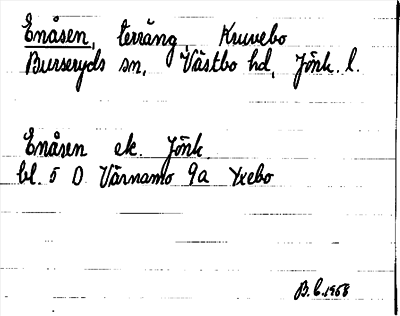 Enåsen, terräng, Kruvebo
Burseryds sn, Västbo hd, Jönk. l.
Enåsen ek. Jönk.
bl. 5 D Värnamo 9a Yxebo
B.C. 1968